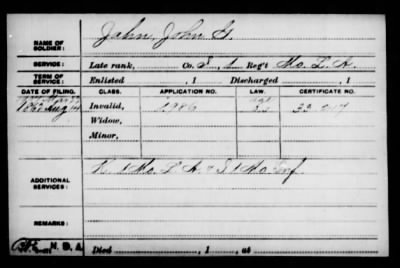 NAME OF SOLDIER: Jahn, John G.
SERVICE: Late rank, Co. S, 1 Reg't Mo. L. A.
TERM OF SERVICE: Enlisted , 1 Discharged , 1
DATE OF FILING. CLASS. APPLICATION NO. LAW. CERTIFICATE NO.
Aug Invalid, 1986
Widow,
Minor,
ADDITIONAL SERVICES: K 1 Mo. L. A. & S 1 Mo. Inf.
REMARKS:
N. B. A. Died , 1 , at